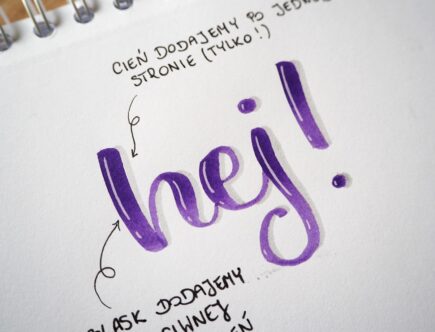 CIEŃ DODAJEMY PO JEDNEJ
STRONIE (TYLKO!)
hej!
BLASK DODAJEMY